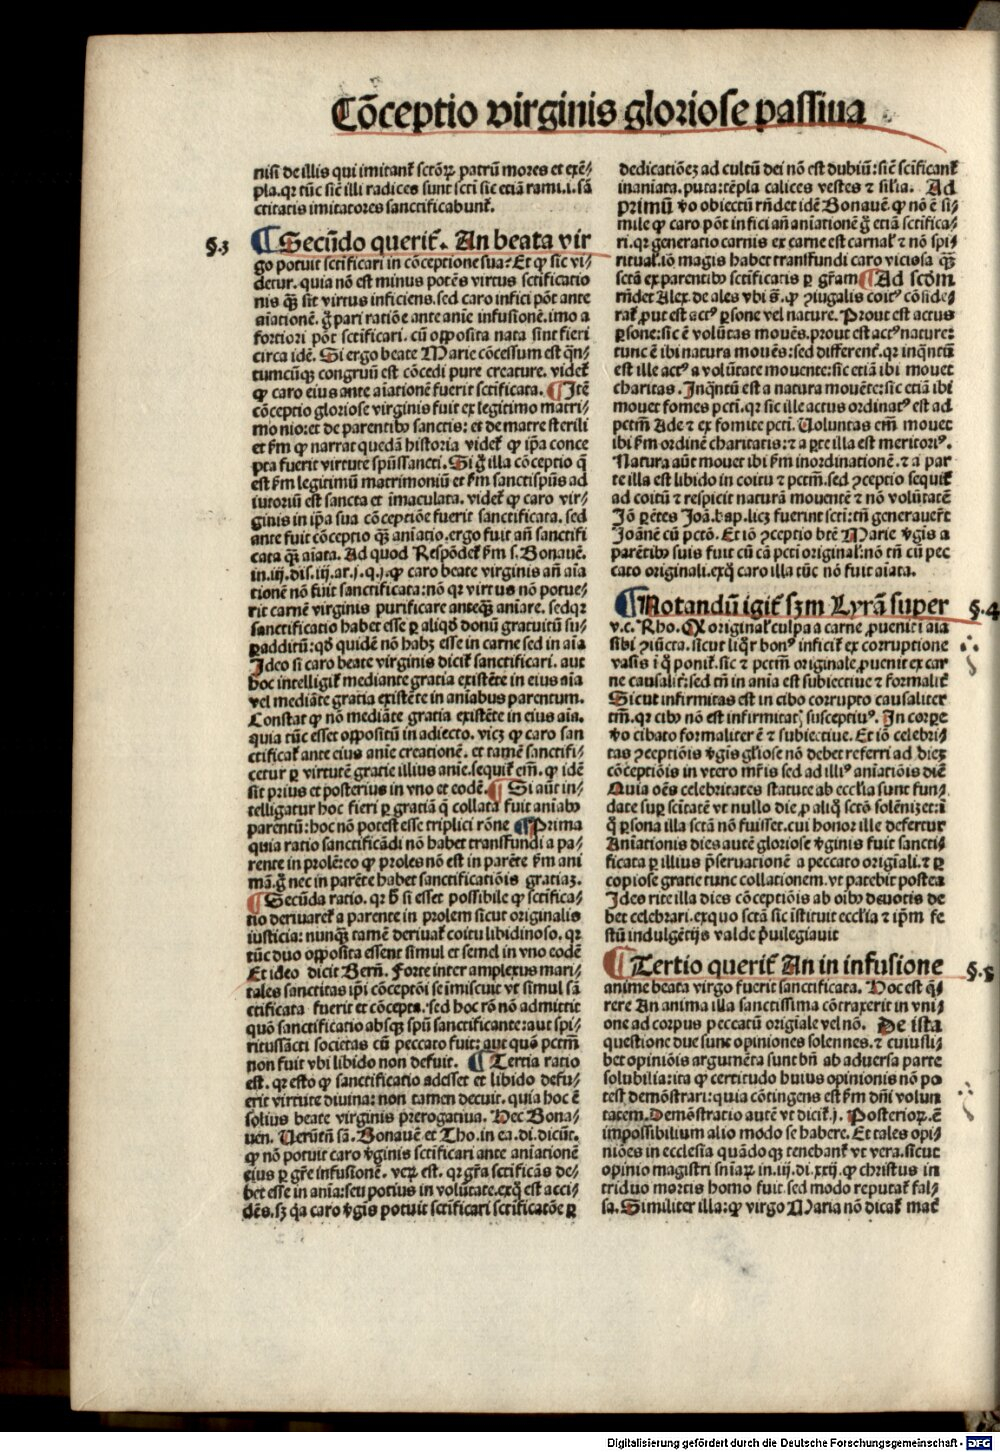 Cōceptio virginis gloriose passiua
nisi de illis qui imitant᷑ sctōꝝ patrū mores et exē-
pla. qꝛ tūc sic̄ illi radices sunt scti sic etiā rami .i. sā
ctitatis imitatores sanctificabunt᷑.
§.3 Secūdo querit᷑. An beata vir
go potuit sctificari in cōceptione sua? Et ꝙ sic vi-
detur. quia nō est minus potēs virtus sctificatio
nis qꝫ̄ sit virtus inficiens. sed caro infici pōt ante
aīationē. g̊ pari ratiōe ante anīe infusionē. imo a
fortiori pōt sctificari. cū opposita nata sint fieri
circa idē. Si ergo beate Marie cōcessum est qn̄-
tumcūqꝫ congruū est cōcedi pure creature. videt᷑
ꝙ caro eius ante aīationē fuerit sctificata. Itē
cōceptio gloriose virginis fuit ex legitimo matri-
monio: et de parentibꝰ sanctis: et de matre sterili
et ẜm ꝙ narrat quedā historia videt᷑ ꝙ ip̄a conce
pta fuerit virtute spūssancti. Si g̊ illa cōceptio q̄
est ẜm legitimū matrimoniū et ẜm sanctispūs ad
iutoriū est sancta et imaculata. videt᷑ ꝙ caro vir-
ginis in ip̄a sua cōceptiōe fuerit sanctificata. sed
ante fuit cōceptio qꝫ̄ aniatio. ergo fuit añ sanctifi
cata qꝫ̄ aīata. Ad quod Respōdet᷑ ẜm s. Bonauē.
in .iij. dis. iij. ar. j. q. j. ꝙ caro beate virginis añ aīa
tionē nō fuit sanctificata: nō qꝛ virtus nō potue-
rit carnē virginis purificare anteqꝫ̄ aniare. sed qꝛ
sanctificatio habet esse ꝑ aliqḋ donū gratuitū su-
ꝑadditū: qḋ quidē nō habꝫ esse in carne sed in aīa
Ideo si caro beate virginis dicit᷑ sanctificari. aut
hoc intelligit᷑ mediante gratia existēte in eius aīa
vel mediāte gratia existēte in aniabus parentum.
Constat ꝙ nō mediāte gratia existēte in eius aīa.
quia tūc esset oppositū in adiecto. vicꝫ ꝙ caro san
ctificat᷑ ante eius anīe creationē. et tamē sanctifi-
cetur ꝑ virtutē gratie illius anīe. sequit᷑ em̄. ꝙ idē
sit prius et posterius in vno et eodē. Si aūt in-
telligatur hoc fieri ꝑ gratiā q̄ collata fuit aniabꝰ
parentū: hoc nō potest esse triplici rōne Prima
quia ratio sanctificādi nō habet transfundi a pa-
rente in prolē: eo ꝙ proles nō est in parēte ẜm ani
mā. g̊ nec in parēte habet sanctificatiōis gratiaꝫ.
Secūda ratio. qꝛ ḣ si esset possibile ꝙ sctifica-
tio deriuaret᷑ a parente in prolem sicut originalis
iusticia: nunqꝫ̄ tamē deriuat᷑ coitu libidinoso. qꝛ
tūc duo opposita essent simul et semel in vno eodē
Et ideo dicit Bern̄. Forte inter amplexus mari-
tales sanctitas ip̄i cōceptōi se imiscuit vt simul sā
ctificata fuerit et cōcepta. sed hoc rō nō admittit
quō sanctificatio absqꝫ spū sanctificante: aut spi-
ritussācti societas cū peccato fuit: aut quō pctm̄
non fuit vbi libido non defuit. Tertia ratio
est. qꝛ esto ꝙ sanctificatio adesset et libido defu-
erit virtute diuina: non tamen decuit. quia hoc ē
solius beate virginis prerogatiua. Hec Bona-
uen. Verūtn̄ sā. Bonauē et Tho. in ea. di. dicūt.
ꝙ nō potuit caro v̇ginis sctificari ante aniationē
eius ꝑ grē infusionē. veꝝ est. qꝛ gr̄a sctificās de-
bet esse in anīa: seu potius in volūtate. exq̊ est acci-
dēs. sꝫ q̇a caro v̇gīs potuit sctificari sctificatōe ꝑ
dedicatiōeꝫ ad cultū dei nō est dubiū: sic̄ sctificant᷑
inaniata. puta: tēpla calices vestes ⁊ silia. Ad
primū v̊o obiectū rn̄det idē Bonauē ꝙ nō ē si-
mile ꝙ caro pōt infici añ aniationē g̊ etiā sctifica-
ri. qꝛ generatio carnis ex carne est carnal᷑ ⁊ nō spi-
ritual. iō magis habet transfundi caro viciosa qꝫ̄
sctā ex parentibꝰ sctificatis ꝑ gr̄am Ad scdm
rn̄det Alex. de ales vbi s̄. ꝙ ꝯiugalis coitꝰ cōside-
rat᷑ ꝓut est actꝰ ꝑsone vel nature. Prout est actus
ꝑsone: sic ē volūtas mouēs. prout est actꝰ nature:
tunc ē ibi natura mouēs: sed different᷑. qꝛ inqn̄tū
est ille actꝰ a volūtate mouente: sic etiā ibi mouet
charitas. Inqn̄tū est a natura mouēte: sic etiā ibi
mouet fomes pcti. qꝛ sic ille actus ordinatꝰ est ad
pctm̄ Ade ⁊ ex fomite pcti. Voluntas em̄ mouet
ibi ẜm ordinē charitatis: ⁊ a ꝑte illa est meritoriꝰ.
Natura aūt mouet ibi ẜm inordinationē. ⁊ a par
te illa est libido in coitu ⁊ pctm̄. sed ꝯceptio sequit᷑
ad coitū ⁊ respicit naturā mouentē ⁊ nō volūtatē
Iō ꝑētes Joā. bap. licꝫ fuerint scti: tn̄ generauer̄t
Joānē cū pctō. Et iō ꝯceptio btē Marie v̇gīs a
parētibꝰ suis fuit cū cā pcti original᷑: nō tn̄ cū pec
cato originali. exq̊ caro illa tūc nō fuit aīata.
Notandū igit᷑ sꝫm Lyrā super §.4
v.c. Rho. Q original᷑ culpa a carne ꝓuenit i aīa
sibi ꝯiūcta. sicut liq̊r bonꝰ inficit᷑ ex corruptione
vasis i q̊ ponit᷑. sic ⁊ pctm̄ originale ꝓuenit ex car
ne causalit᷑: sed tn̄ in aīa est subiectiue ⁊ formalit᷑
Sicut infirmitas est in cibo corrupto causaliter
tm̄. qꝛ cibꝰ nō est infirmitatꝭ susceptiuꝰ. In corꝑe
v̊o cibato formaliter ē ⁊ subiectiue. Et iō celebri-
tas ꝯceptiōis v̇gīs gl̄iose nō debet referri ad dieꝫ
cōceptiōis in vtero mr̄is sed ad illiꝰ aniatiōis diē
Quia oēs celebritates statute ab ecclīa sunt fun-
date suꝑ sc̄itatē vt nullo die ꝓ aliq̊ sctō solēnizet᷑: ī
q̊ ꝑsona illa sctā nō fuisset. cui honor ille defertur
Aniationis dies autē gloriose v̇ginis fuit sancti-
ficata ꝑ illius p̄seruationē a peccato origīali. ⁊ ꝑ
copiose gratie tunc collationem. vt patebit postea
Ides rite illa dies cōceptiōis ab oībꝰ deuotis de
bet celebrari. exquo sctā sic īstituit ecclīa ⁊ ip̄m fe
stū indulgētijs valde p̄uilegiauit
Tertio querit᷑ An in infusione §.5
anime beata virgo fuerit sanctificata. Hoc est q̄-
rere An anima illa sanctissima cōtraxerit in vni-
one ad corpus peccatū origīale vel nō. De ista
questione due sunt opiniones solennes. ⁊ cuiusli-
bet opiniōis argumēta sunt bn̄ ab aduersa parte
solubilia: ita ꝙ certitudo huius opinionis nō po
test demōstrari: quia cōtingens est ẜm dn̄i volun
tatem. Demōstratio autē vt dicit᷑ .j. Posterioꝝ. ē
impossibilium alio modo se habere. Et tales opi-
niōes in ecclesia quādoqꝫ tenebant᷑ vt vera. sicut
opinio magistri sniaꝝ in .iij. di. xxij. ꝙ christus in
triduo mortis homo fuit. sed modo reputat᷑ fal-
sa. Similiter illa: ꝙ virgo Maria nō dicat᷑ mat᷑
Digitalisierung gefördert durch die Deutsche Forschungsgemeinschaft - DFG